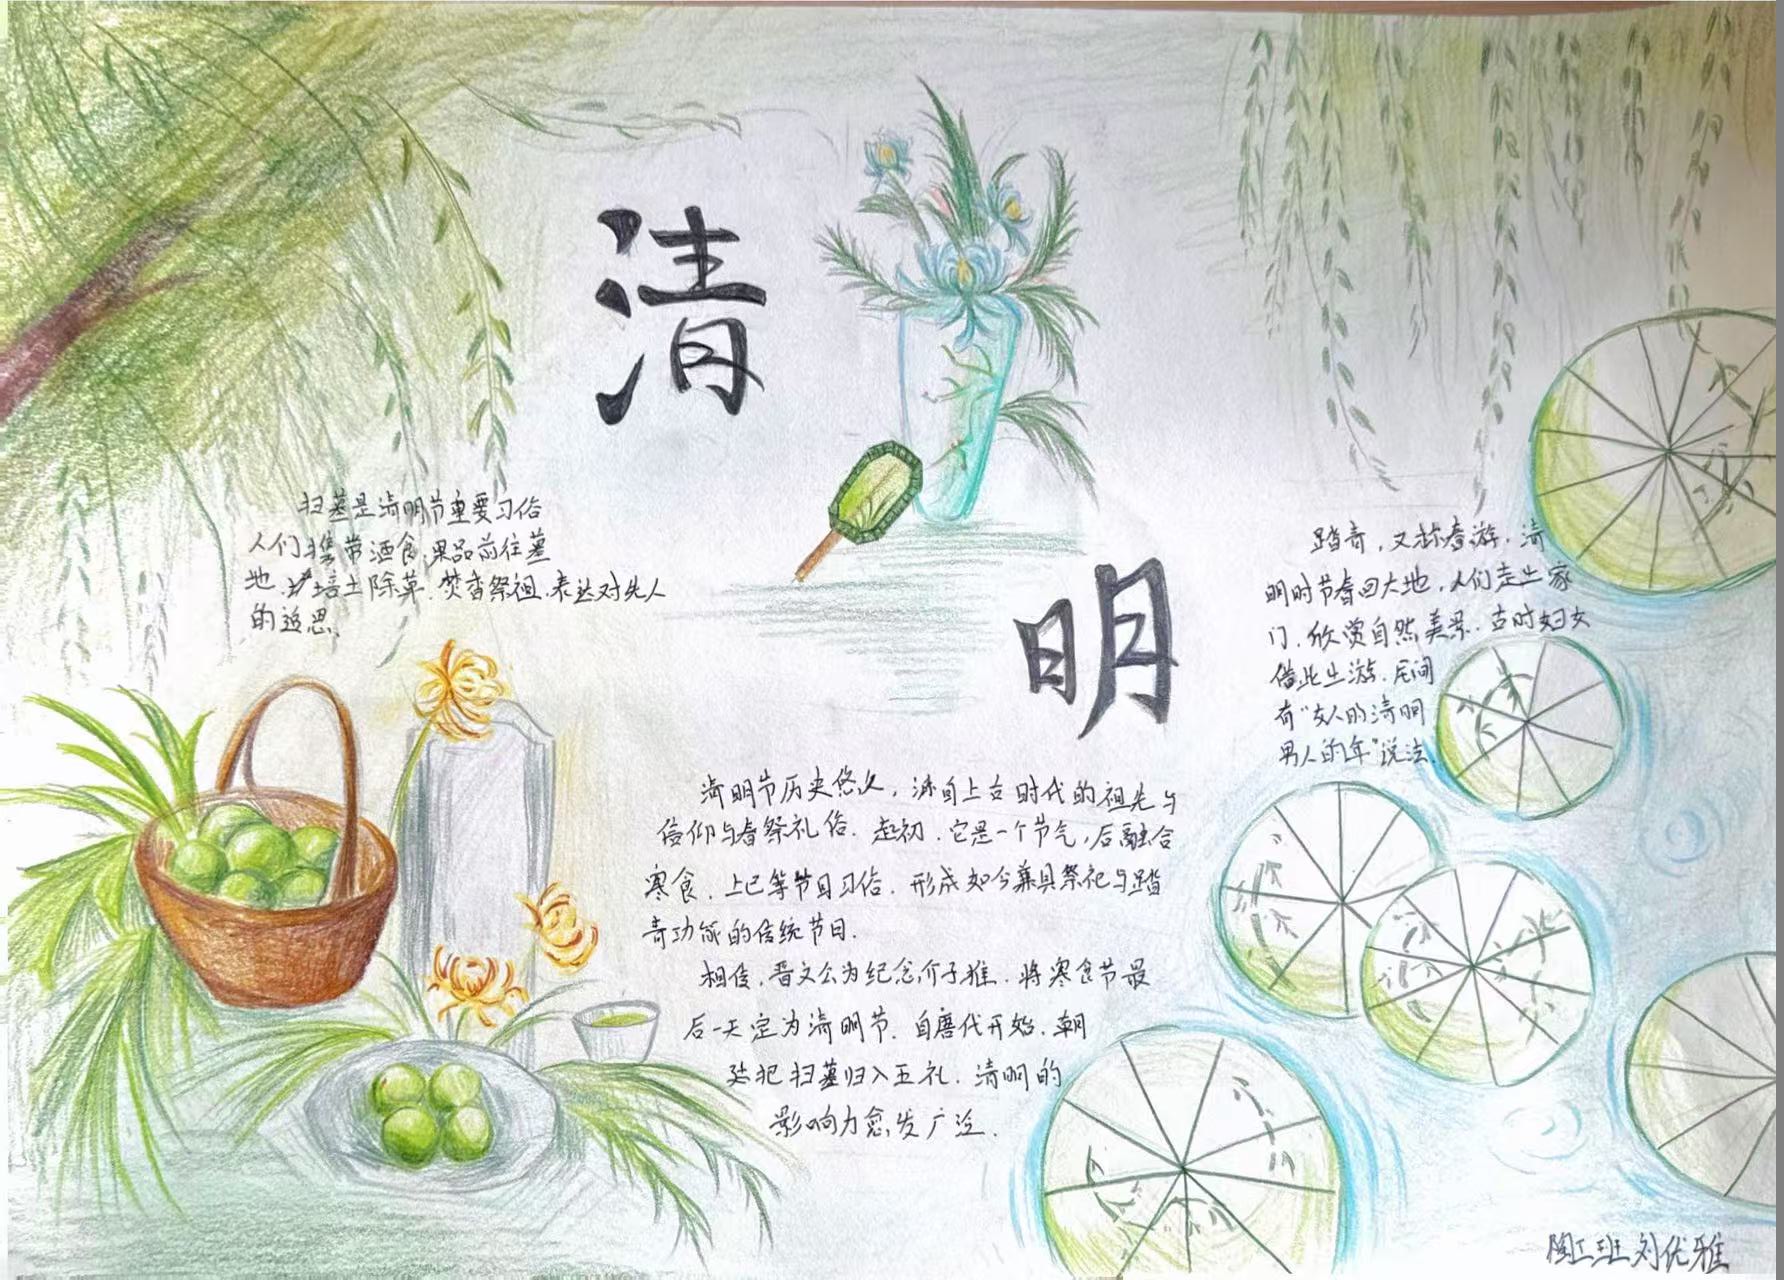 清
明
扫墓是清明节重要习俗
人们携带酒食.果品前往墓
地.培土除草.焚香祭祖.表达对先人
的追思.
踏青,又称春游.清
明时节春回大地,人们走出家
门.欣赏自然美景.古时妇女
借此出游.民间
有"女人的清明
男人的年"说法.
清明节历史悠久,源自上古时代的祖先与
信仰与春祭礼俗.起初.它是一个节气,后融合
寒食.上巳等节日习俗.形成如今兼具祭祀与踏
青功能的传统节日.
相传,晋文公为纪念介子推.将寒食节最
后一天定为清明节.自唐代开始.朝
廷把扫墓归入五礼.清明的
影响力愈发广泛.
陶工班刘优雅